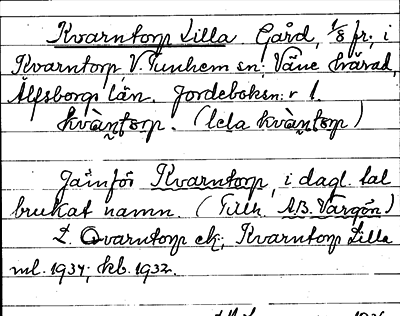 Kvarntorp Lilla. Gård, 1/8 fr., i
Kvarntorp, V. Tunhem sn, Väne härad,
Älfsborgs län. Jordeboksn:r 1.
kvàn̥torp. (lela kvàn̥torp)
Jämför Kvarntorp, i dagl. tal
brukat namn. (Tillh. A.B. Vargön)
L. Qvarntorp ek; Kvarntorp Lilla
ml. 1934; kb. 1932.